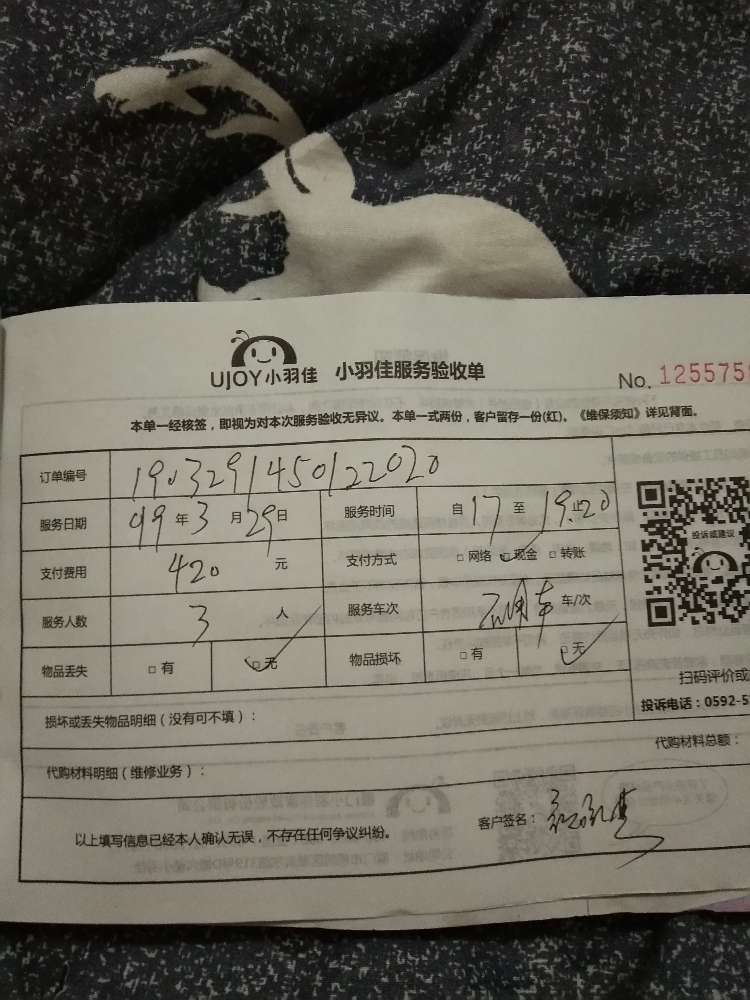 UJOY小羽佳 小羽佳服务验收单 No. 125575
本单一经核签，即视为对本次服务验收无异议。本单一式两份，客户留存一份(红)。《维保须知》详见背面。
订单编号 190329145012202020
服务日期 19年3月29日 服务时间 自17至19:20
投诉或建议
支付费用 420元 支付方式 □网络 ☑现金 □转账
服务人数 3人 服务车次 车/次
物品丢失 □有 ☑无 物品损坏 □有 ☑无
扫码评价或
投诉电话：0592-5
损坏或丢失物品明细（没有可不填）：
代购材料总额：
代购材料明细（维修业务）：
以上填写信息已经本人确认无误，不存在任何争议纠纷。 客户签名：